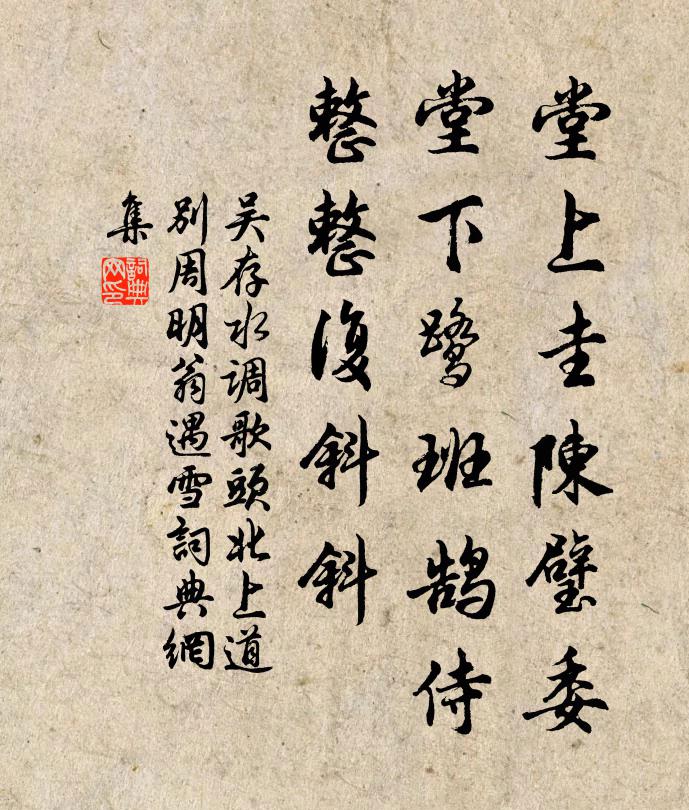 堂上圭陳璧委
堂下鷺班鹄侍
整整復斜斜
吴存水调歌頭北上道
别周明翁遇雪詞典網
集
詞典
网印